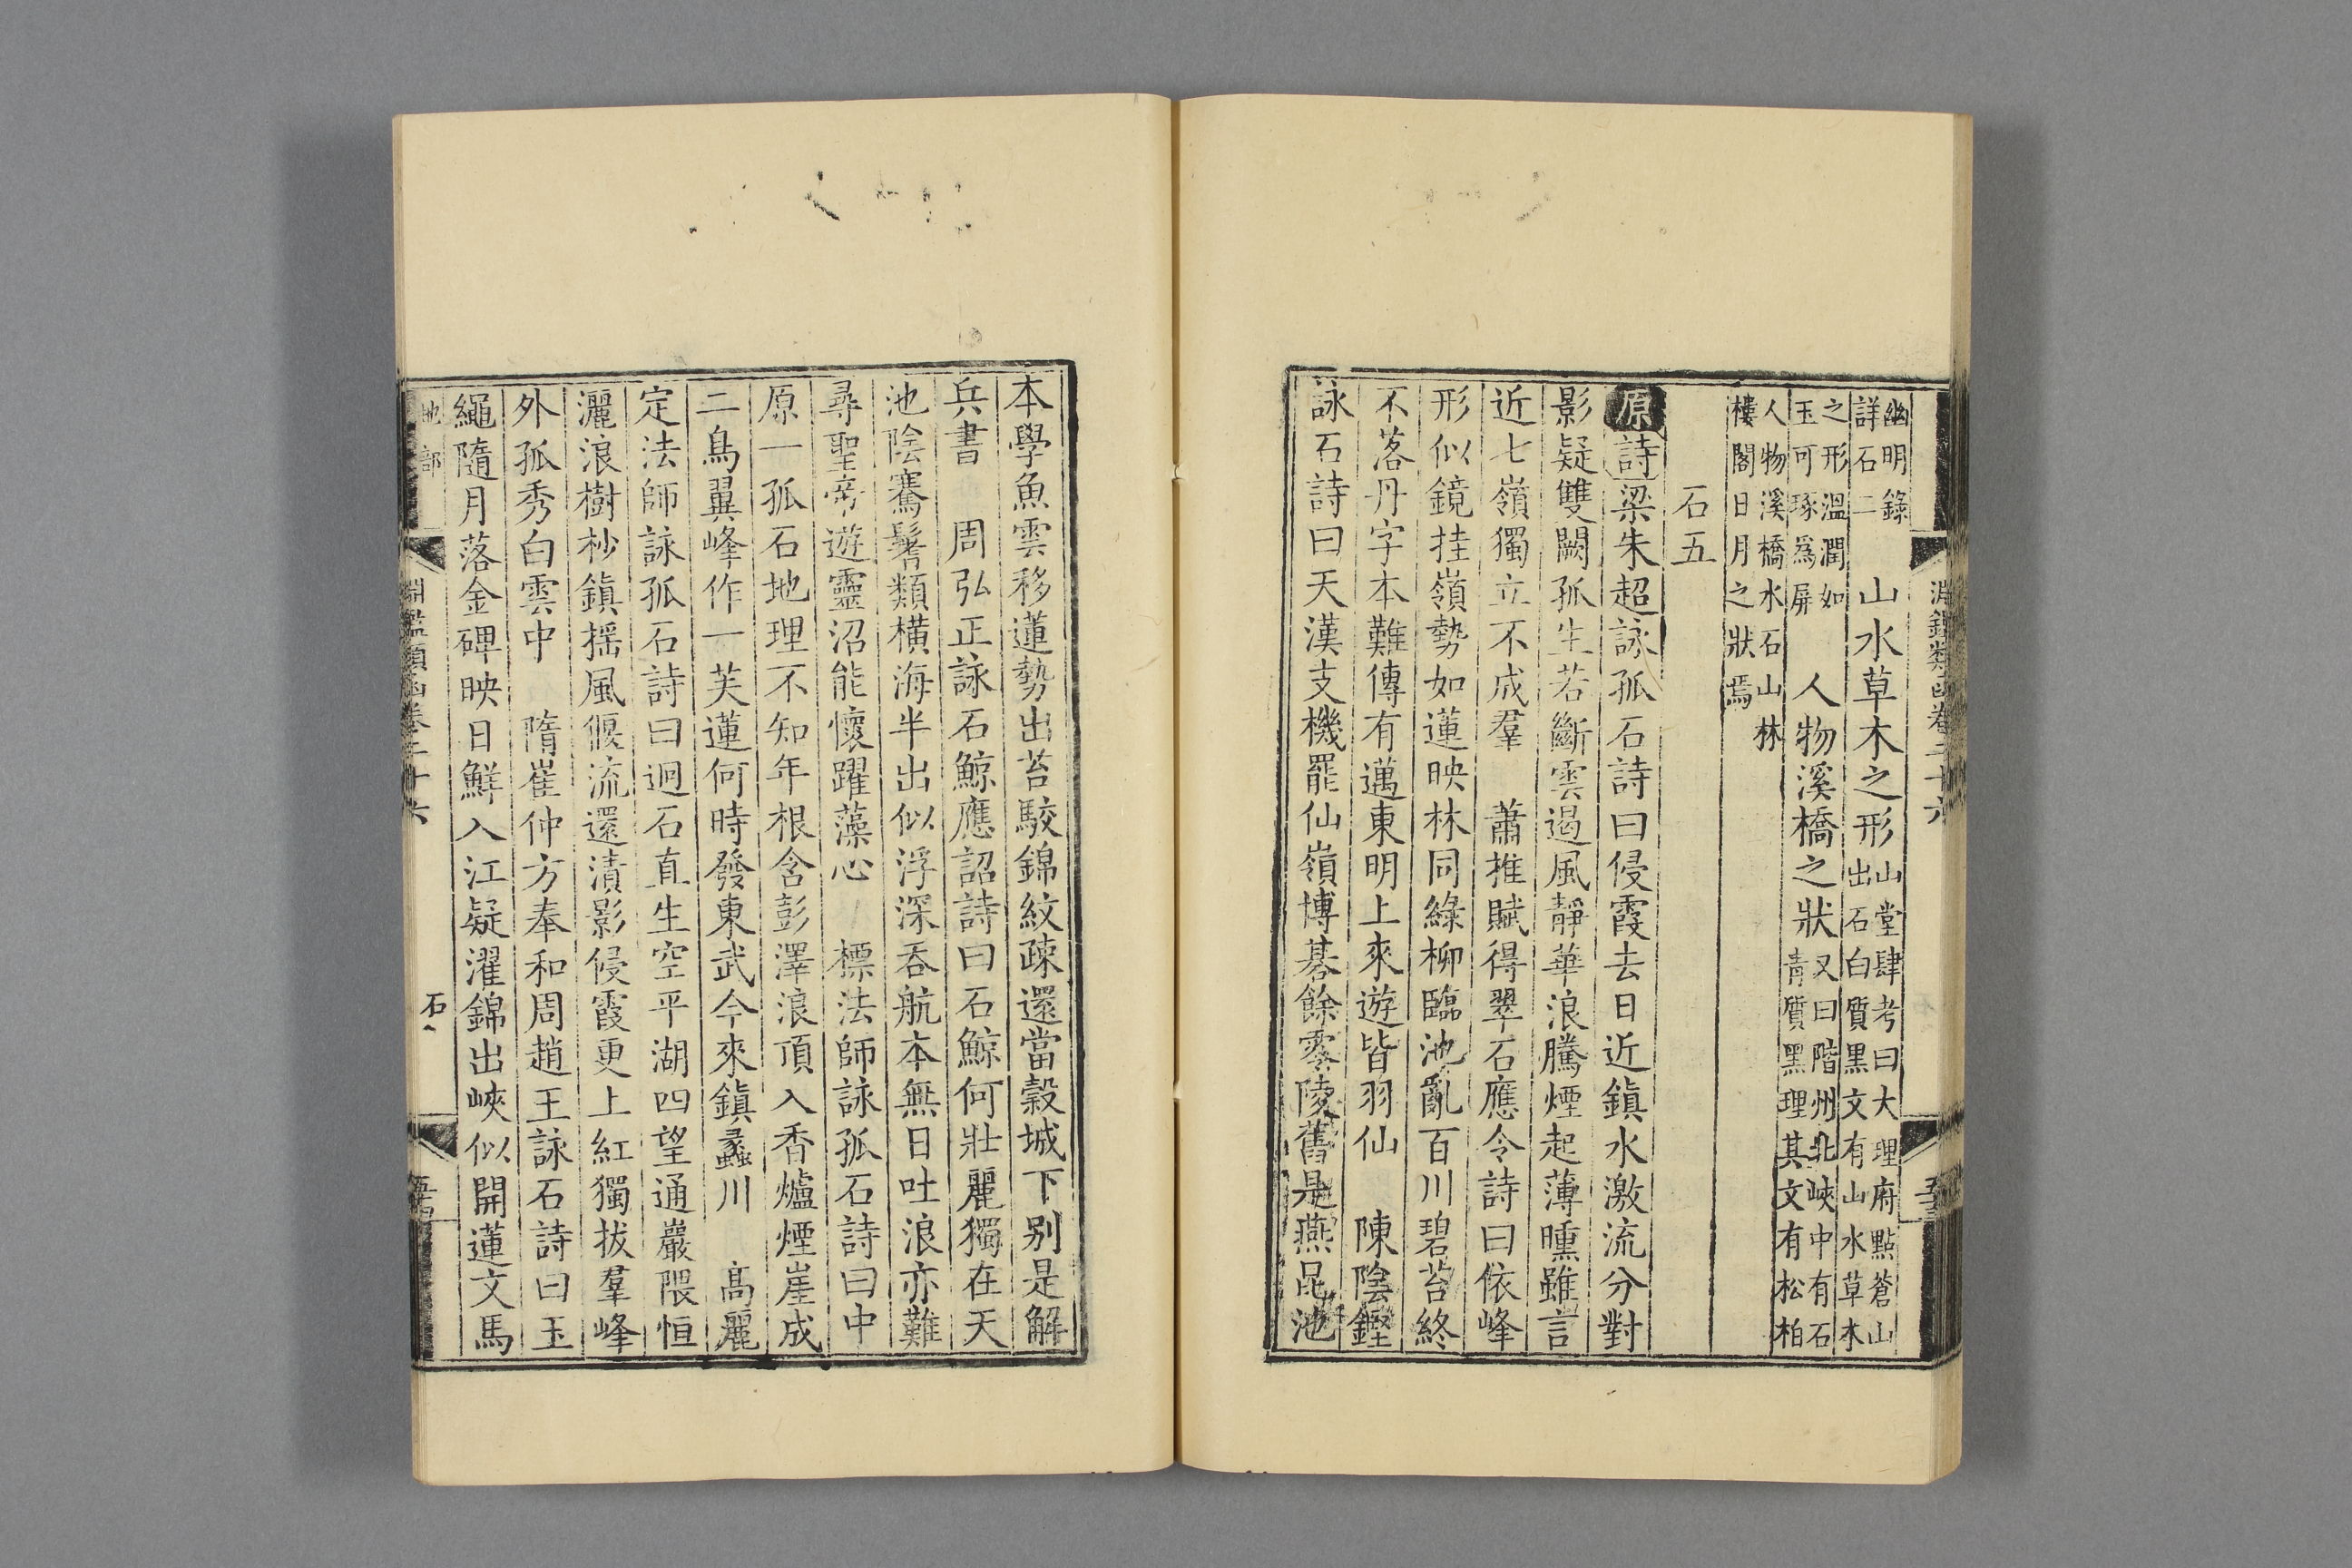 淵鑑類函卷二十六
幽明錄
詳石二
山水草木之形
山堂肆考曰大理府點蒼山
出石白質黑文有山水草木
之形溫潤如
玉可琢爲屏
人物溪橋之狀
又曰階州北峽中有石
青質黑理其文有松柏
人物溪橋水石山林
樓閣日月之狀焉
石五
原詩梁朱超詠孤石詩曰侵霞去日近鎮水激流分對
影疑雙闕孤生若斷雲遏風靜華浪騰煙起薄曛雖言
近七嶺獨立不成羣 蕭推賦得翠石應令詩曰依峰
形似鏡挂嶺勢如蓮映林同綠柳臨池亂百川碧苔終
不落丹字本難傳有邁東明上來遊皆羽仙 陳陰鏗
詠石詩曰天漢支機罷仙嶺博棊餘零陵舊是燕昆池
本學魚雲移蓮勢出苔駮錦紋疎還當穀城下别是解
兵書 周弘正詠石鯨應詔詩曰石鯨何壯麗獨在天
池陰騫鬐類橫海半出似浮深吞航本無日吐浪亦難
尋聖帝遊靈沼能懷躍藻心 標法師詠孤石詩曰中
原一孤石地理不知年根含彭澤浪頂入香爐煙崖成
二鳥翼峰作一芙蓮何時發東武今來鎮蠡川 高麗
定法師詠孤石詩曰迥石直生空平湖四望通巖隈恒
灑浪樹杪鎮搖風偃流還漬影侵霞更上紅獨拔羣峰
外孤秀白雲中 隋崔仲方奉和周趙王詠石詩曰玉
繩隨月落金碑映日鮮入江疑濯錦出峽似開蓮文馬
地部
淵鑑類函卷二十六
石